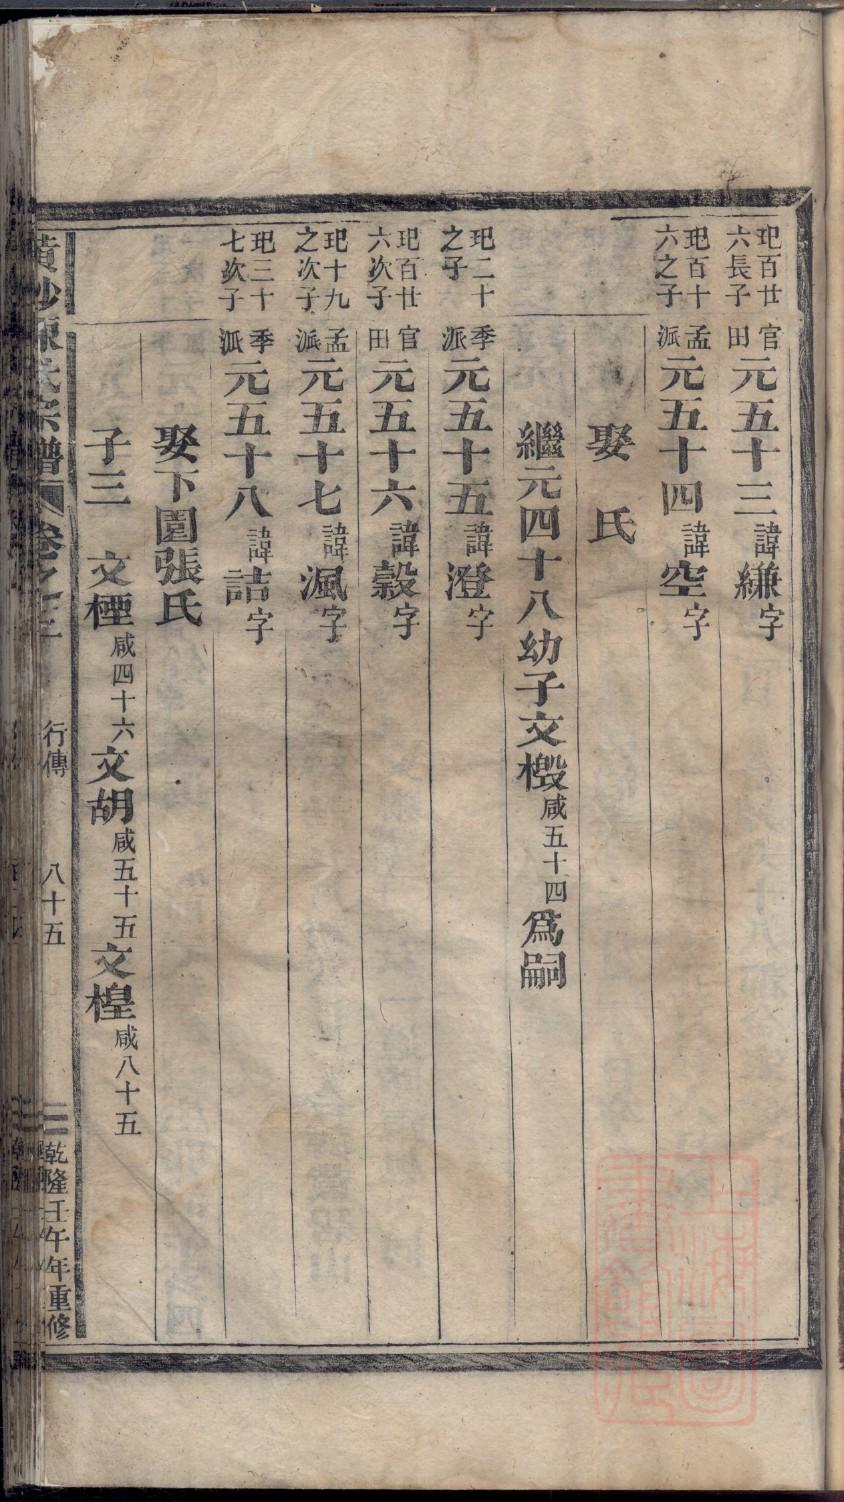 𤣱百廿六長子 官田 元五十三 諱縑字
𤣱百十六之子 孟派 元五十四 諱空字
娶 氏
繼元四十八幼子文㯙咸五十四為嗣
𤣱二十之子 季派 元五十五 諱澄字
𤣱百廿六次子 官田 元五十六 諱穀字
𤣱十九之次子 孟派 元五十七 諱渢字
𤣱三十七次子 季派 元五十八 諱詰字
娶下園張氏
子三 文㮒咸四十六 文胡咸五十五 文楻咸八十五
黃沙陳氏宗譜 卷之三 行傳 八十五 乾隆壬午年重修
上海圖書館藏